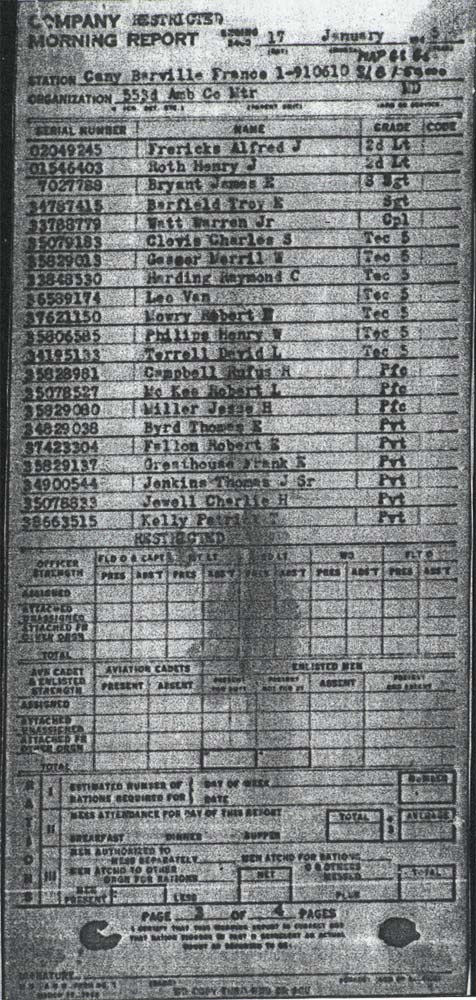 COMPANY RESTRICTED
MORNING REPORT ENDING 17 January 5
STATION Cany Barville France 1-910610
ORGANIZATION 553d Amb Co Mtr MD
SERIAL NUMBER NAME GRADE CODE
02049245 Frericks Alfred J 2d Lt
01546403 Roth Henry J 2d Lt
7027788 Bryant James E S Sgt
34787415 Barfield Troy E Sgt
33788779 Watt Warren Jr Cpl
35079183 Clovis Charles S Tec 5
35829013 Gesser Merril W Tec 5
33848530 Harding Raymond C Tec 5
36589174 Leo Van Tec 5
37621150 Mowry Robert E Tec 5
35806585 Philips Henry W Tec 5
34195133 Terrell David L Tec 5
35828981 Campbell Rufus H Pfc
35078527 Mc Kee Robert L Pfc
35829080 Miller Jesse H Pfc
34829038 Byrd Thomas E Pvt
37423304 Fallon Robert E Pvt
35829137 Greathouse Frank E Pvt
34900544 Jenkins Thomas J Sr Pvt
35078833 Jewell Charlie H Pvt
38663515 Kelly Patrick Pvt
RESTRICTED
OFFICER STRENGTH FLD O & CAPT 1ST LT 2D LT WO FLT O
PRES ABS'T PRES ABS'T PRES ABS'T PRES ABS'T PRES ABS'T
ASSIGNED
ATTACHED UNASSIGNED
ATTACHED FR OTHER ORGN
TOTAL
AVN CADET & ENLISTED STRENGTH AVIATION CADETS ENLISTED MEN
PRESENT ABSENT PRESENT FOR DUTY PRESENT NOT FOR DY ABSENT PRESENT AND ABSENT
ASSIGNED
ATTACHED UNASSIGNED
ATTACHED FR OTHER ORGN
TOTAL
RATIONS
I ESTIMATED NUMBER OF RATIONS REQUIRED FOR DAY OF WEEK DATE NUMBER
II MESS ATTENDANCE FOR DAY OF THIS REPORT TOTAL ÷ 3 AVERAGE
BREAKFAST DINNER SUPPER
III MEN AUTHORIZED TO MESS SEPARATELY MEN ATCHD FOR RATIONS
MEN ATCHD TO OTHER ORGN FOR RATIONS NET TOTAL
MEN PRESENT LESS PLUS
PAGE 3 OF 4 PAGES
SIGNATURE